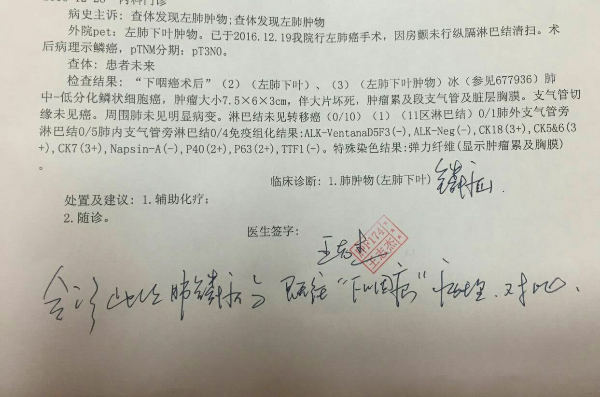 病史主诉: 查体发现左肺肿物;查体发现左肺肿物
外院pet: 左肺下叶肿物。已于2016.12.19我院行左肺癌手术，因房颤未行纵隔淋巴结清扫。术
后病理示鳞癌，pTNM分期: pT3N0。
查体: 患者未来
检查结果: “下咽癌术后”（2）（左肺下叶）、（3）（左肺下叶肿物）冰（参见677936）肺
中-低分化鳞状细胞癌，肿瘤大小7.5×6×3cm，伴大片坏死，肿瘤累及段支气管及脏层胸膜。支气管切
缘未见癌。周围肺未见明显病变。淋巴结未见转移癌（0/10）（1）（11区淋巴结）0/1肺外支气管旁
淋巴结0/5肺内支气管旁淋巴结0/4免疫组化结果:ALK-VentanaD5F3(-),ALK-Neg(-),CK18(3+),CK5&6(3
+),CK7(3+),Napsin-A(-),P40(2+),P63(2+),TTF1(-)。特殊染色结果:弹力纤维(显示肿瘤累及胸膜)
。
临床诊断: 1.肺肿物(左肺下叶) 鳞癌.
处置及建议: 1.辅助化疗;
2.随诊。
医生签字:
会诊 此次肺鳞癌与既往“下咽癌”病理.对比.